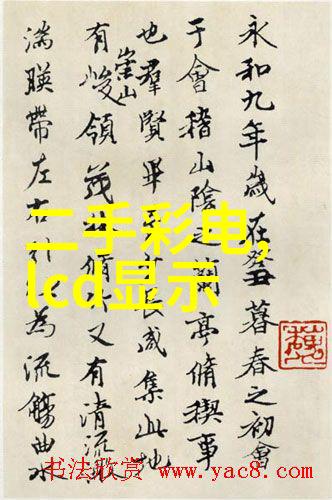 永和九年歲在癸丑暮春之初會
于會稽山陰之蘭亭脩稧事
也羣賢畢至少長咸集此地
有崇山峻領茂林脩竹又有清流激
湍暎帶左右引以為流觴曲水
二手彩电,
lcd显示
书法欣赏 www.yac8.com